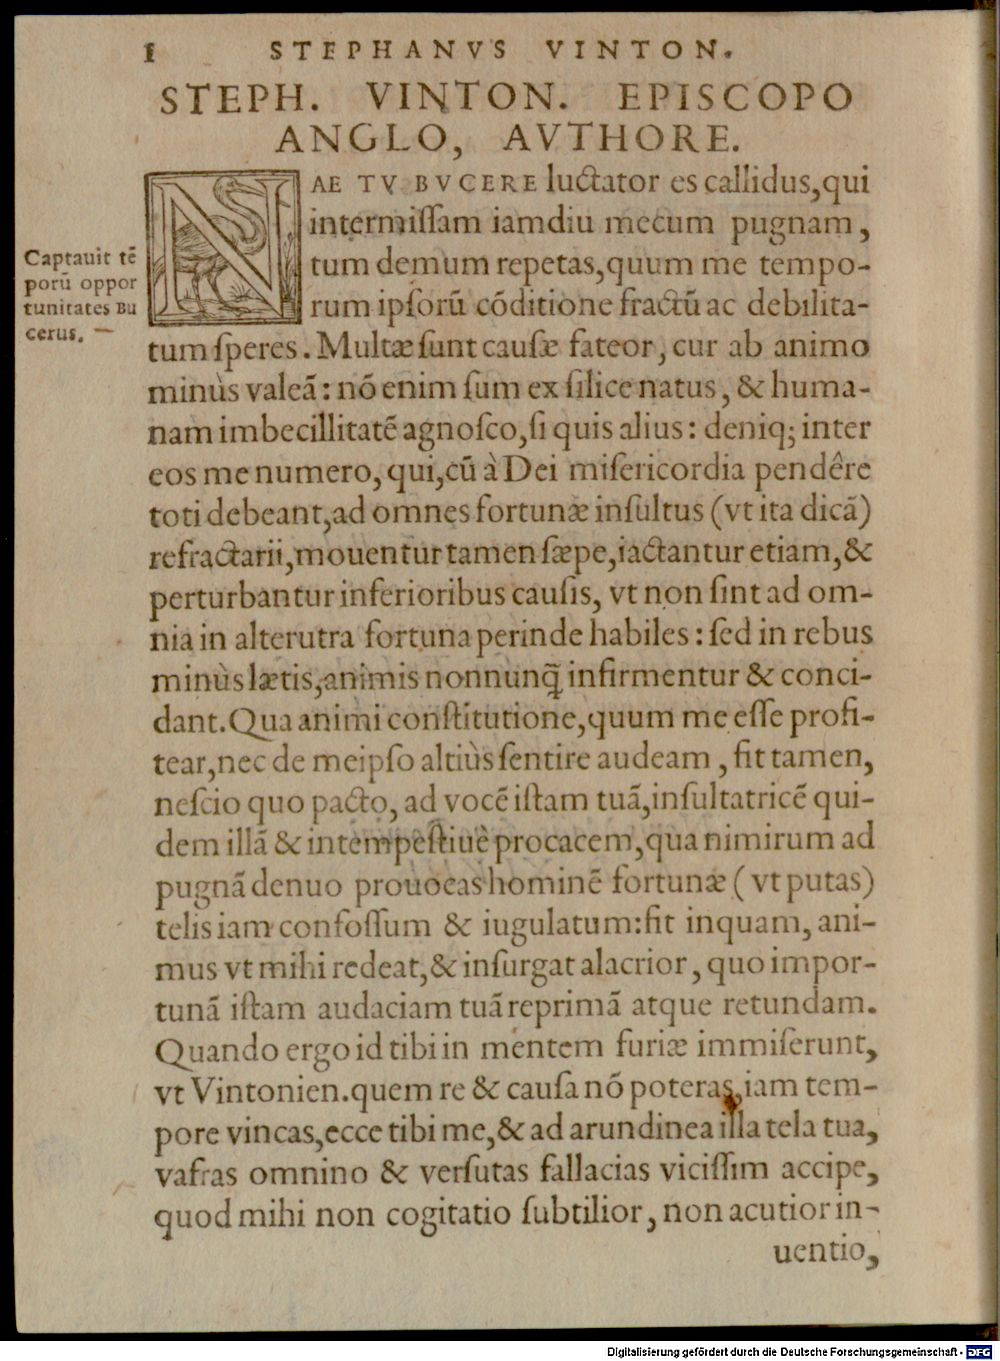 1 STEPHANVS VINTON.
STEPH. VINTON. EPISCOPO
ANGLO, AVTHORE.
NAE TV BVCERE luctator es callidus, qui
intermiſſam iamdiu mecum pugnam,
tum demum repetas, quum me tempo-
rum ipſorũ cõditione fractũ ac debilita-
tum ſperes. Multæ ſunt cauſæ fateor, cur ab animo
minùs valeã: nõ enim ſum ex ſilice natus, & huma-
nam imbecillitatẽ agnoſco, ſi quis alius: deniq; inter
eos me numero, qui, cũ à Dei miſericordia pendêre
toti debeant, ad omnes fortunæ inſultus (vt ita dicã)
refractarii, mouentur tamen ſæpe, iactantur etiam, &
perturbantur inferioribus cauſis, vt non ſint ad om-
nia in alterutra fortuna perinde habiles: ſed in rebus
minùs lætis, animis nonnunq̃ infirmentur & conci-
dant. Qua animi conſtitutione, quum me eſſe profi-
tear, nec de meipſo altiùs ſentire audeam, fit tamen,
neſcio quo pacto, ad vocẽ iſtam tuã, inſultatricẽ qui-
dem illã & intempeſtiuè procacem, qua nimirum ad
pugnã denuo prouocas hominẽ fortunæ (vt putas)
telis iam confoſſum & iugulatum: fit inquam, ani-
mus vt mihi redeat, & inſurgat alacrior, quo impor-
tunã iſtam audaciam tuã reprimã atque retundam.
Quando ergo id tibi in mentem furiæ immiſerunt,
vt Vintonien. quem re & cauſa nõ poteras, iam tem-
pore vincas, ecce tibi me, & ad arundinea illa tela tua,
vafras omnino & verſutas fallacias viciſſim accipe,
quod mihi non cogitatio ſubtilior, non acutior in-
uentio,
Captauit tẽ
porũ oppor
tunitates Bu
cerus.
Digitalisierung gefördert durch die Deutsche Forschungsgemeinschaft - DFG